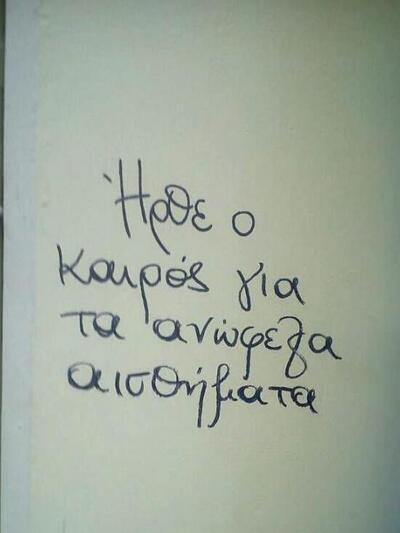 Ήρθε ο
καιρός για
τα ανώφελα
αισθήματα